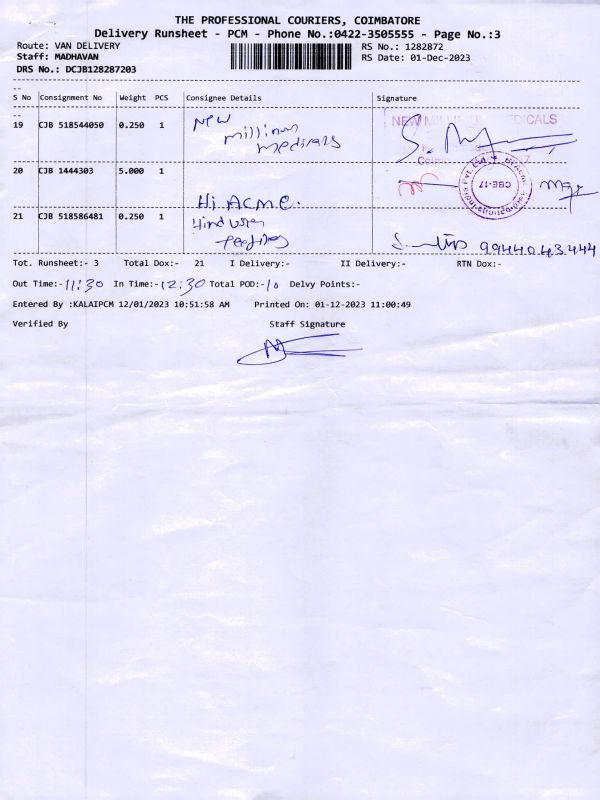 THE PROFESSIONAL COURIERS, COIMBATORE
Delivery Runsheet - PCM - Phone No.:0422-3505555 - Page No.:3
Route: VAN DELIVERY RS No.: 1282872
Staff: MADHAVAN RS Date: 01-Dec-2023
DRS No.: DCJB128287203
S No Consignment No Weight PCS Consignee Details Signature
19 CJB 518544050 0.250 1 New
millinum
medicals
NEW MEDICALS
20 CJB 1444303 5.000 1
Hi Acme.
CBE-17
21 CJB 518586481 0.250 1 Hindusten
9944043444
Tot. Runsheet:- 3 Total Dox:- 21 I Delivery:- II Delivery:- RTN Dox:-
Out Time:- 11:30 In Time:- 12:30 Total POD:- 10 Delvy Points:-
Entered By :KALAIPCM 12/01/2023 10:51:58 AM Printed On: 01-12-2023 11:00:49
Verified By Staff Signature